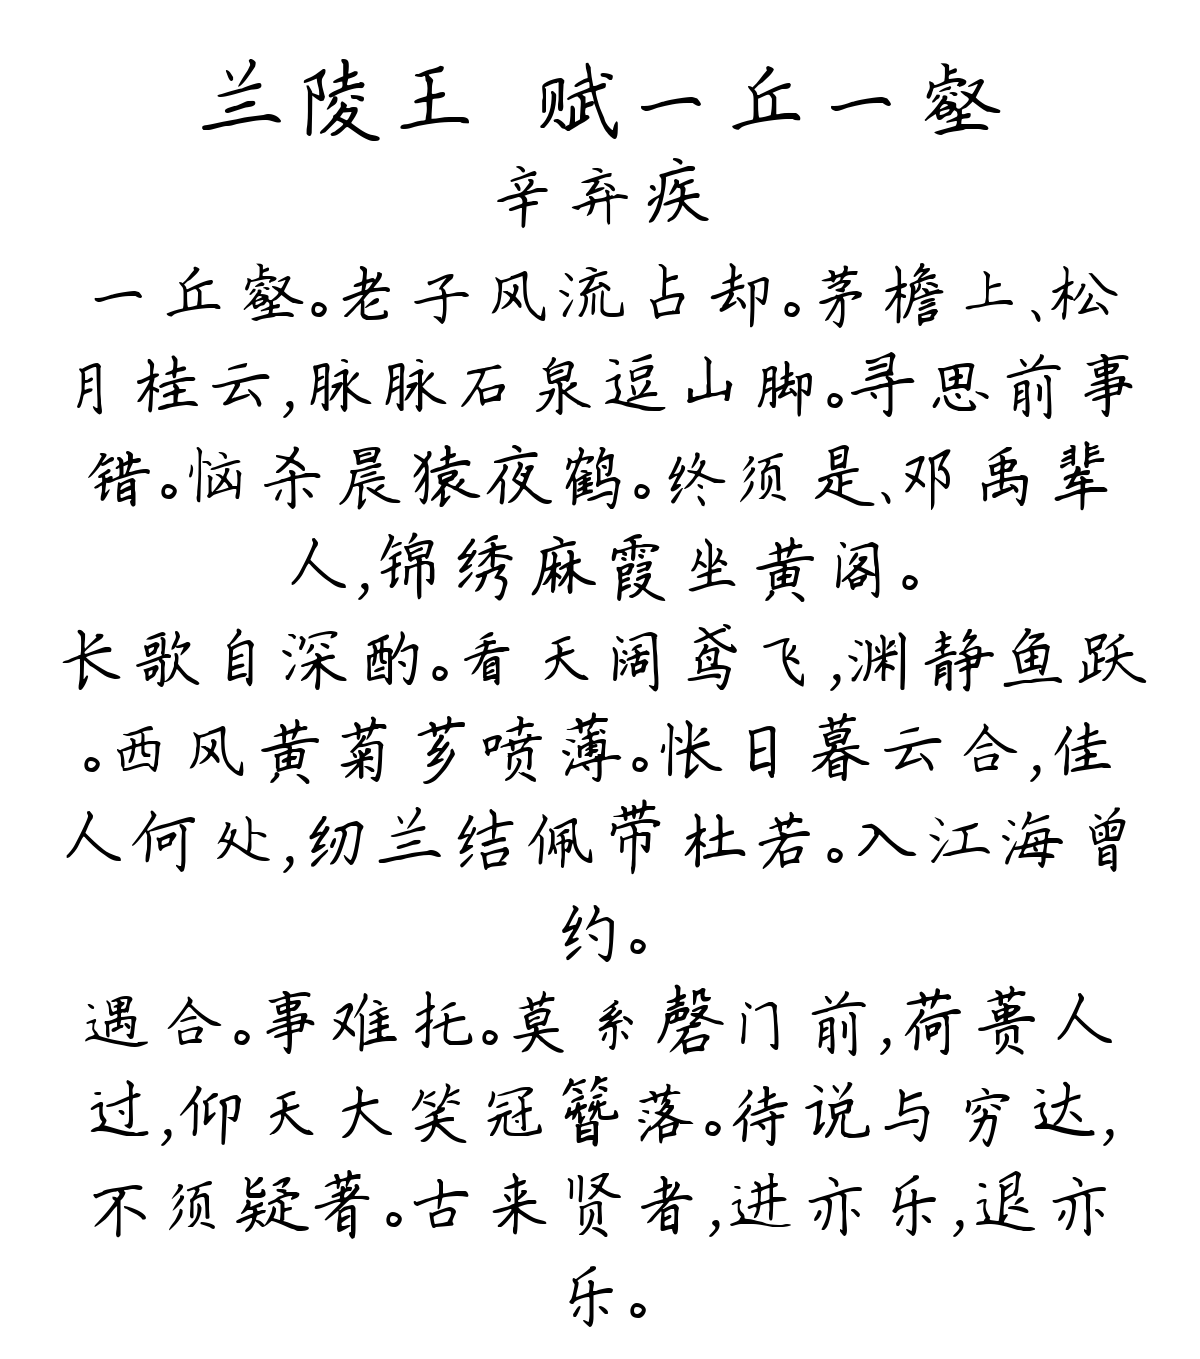 兰陵王 赋一丘一壑
辛弃疾
一丘壑。老子风流占却。茅檐上、松
月桂云,脉脉石泉逗山脚。寻思前事
错。恼杀晨猿夜鹤。终须是、邓禹辈
人,锦绣麻霞坐黄阁。
长歌自深酌。看天阔鸢飞,渊静鱼跃
。西风黄菊芗喷薄。怅日暮云合,佳
人何处,纫兰结佩带杜若。入江海曾
约。
遇合。事难托。莫系磬门前,荷蒉人
过,仰天大笑冠簪落。待说与穷达,
不须疑著。古来贤者,进亦乐,退亦
乐。